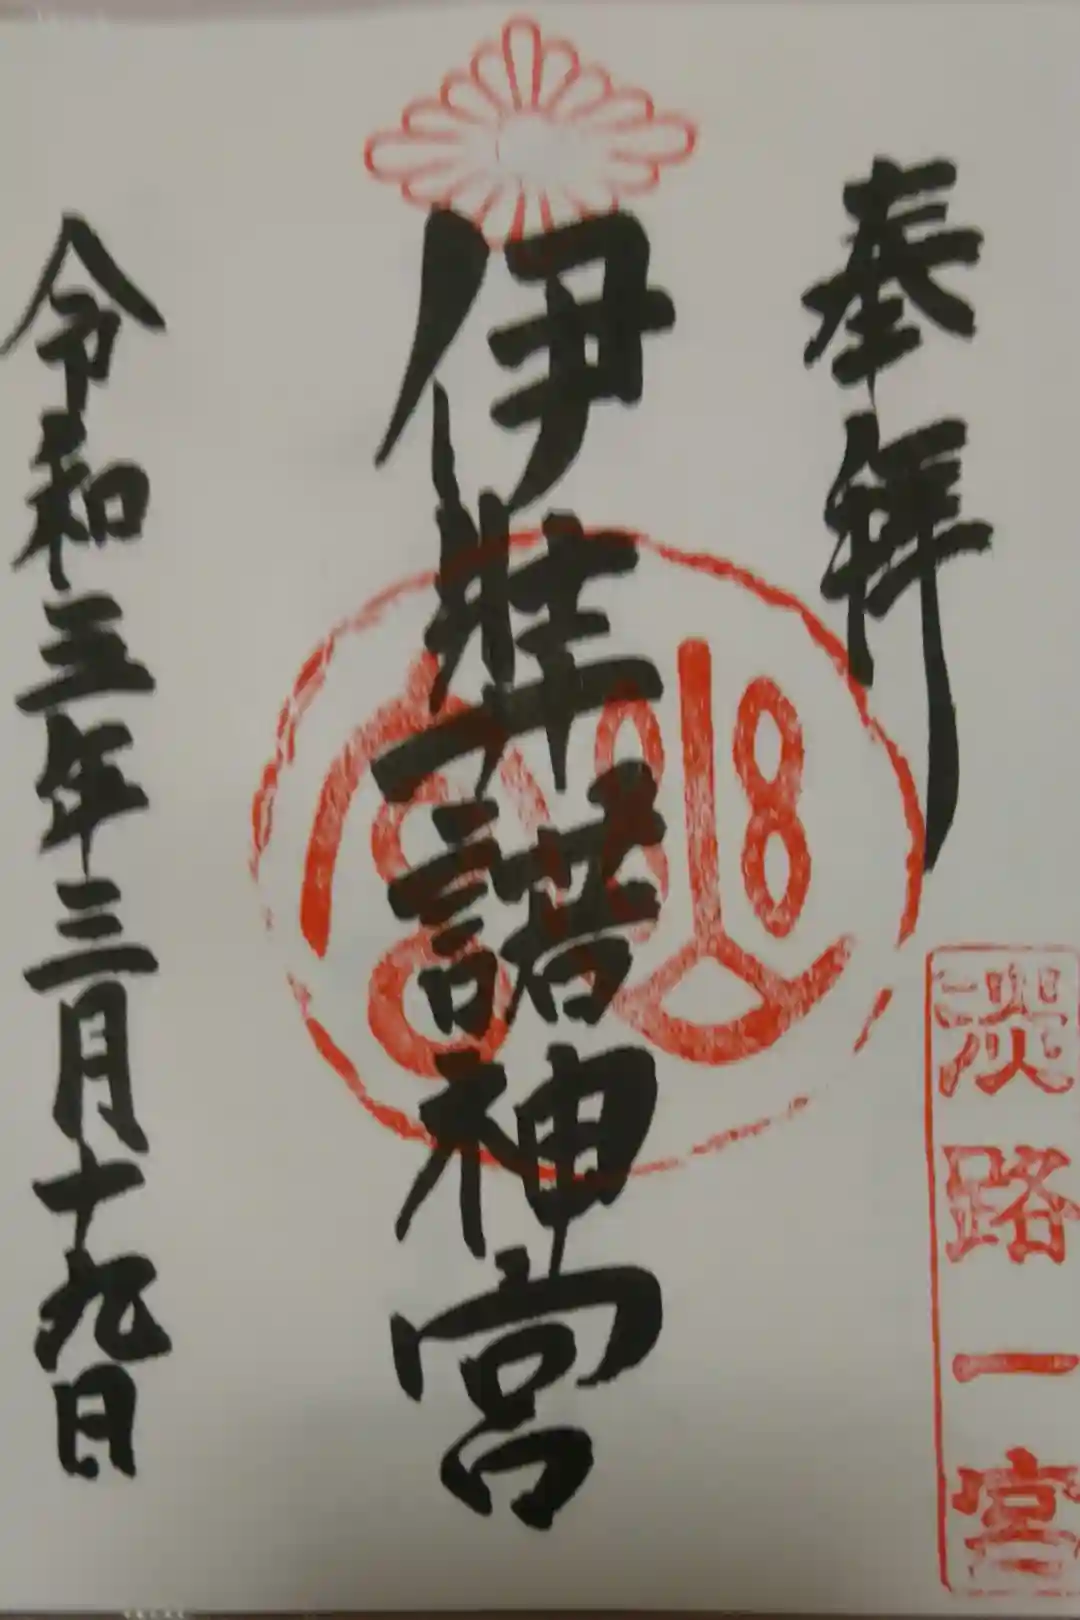 奉拝
淡路一宮
伊弉諾神宮
令和三年三月十九日